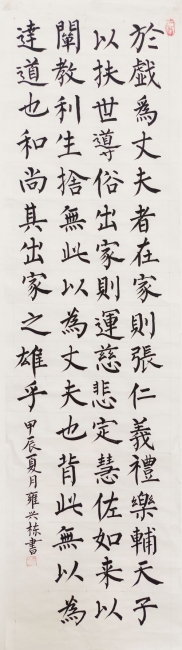 於戯為丈夫者在家則張仁義禮樂輔天子
以扶世導俗出家則運慈悲定慧佐如来以
闡教利生捨無此以為丈夫也背此無以為
達道也和尚其出家之雄乎
甲辰夏月雍兴栋書